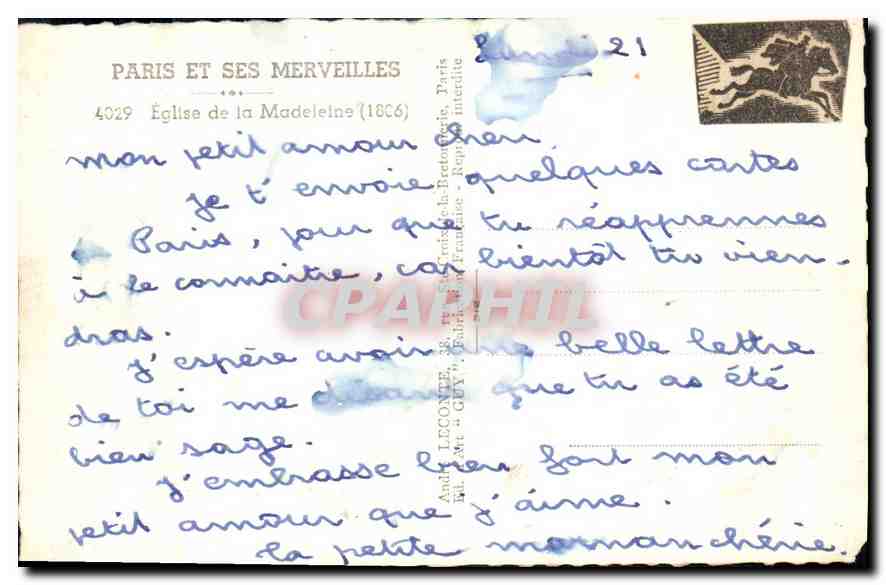 PARIS ET SES MERVEILLES
4029 Église de la Madeleine (1806)
Lundi 21
mon petit amour cheri
je t'envoie quelques cartes
Paris, pour que tu réapprennes
à le connaitre, car bientôt tu vien-
dras.
j'espère avoir une belle lettre
de toi me disant que tu as été
bien sage.
j'embrasse bien fort mon
petit amour que j'aime.
la petite maman chérie.
André LECONTE, 38, rue Ste-Croix-de-la-Bretonnerie, Paris
Ed. d'Art "GUY". Fabrication Française - Reprod. interdite
CPAPHIL